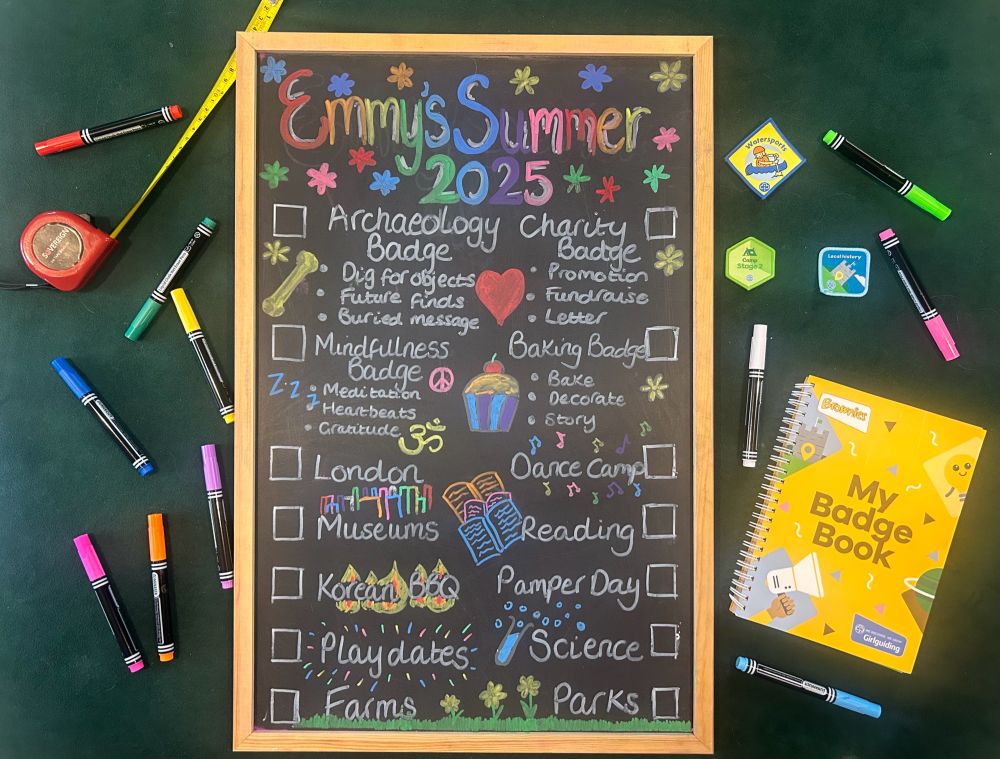 Emmy's Summer
2025
Archaeology
Badge
Dig for objects
Future finds
Buried message
Charity
Badge
Promotion
Fundraise
Letter
Mindfullness
Badge
Meditation
Heartbeats
Gratitude
ॐ
Z Z Z
Baking Badge
Bake
Decorate
Story
London
Dance Camp
Museums
Reading
Korean BBQ
Pamper Day
Playdates
Science
Farms
Parks
SOVEREIGN
Watersports
Camp
Stage 2
Local history
Brownies
My
Badge
Book
Girlguiding